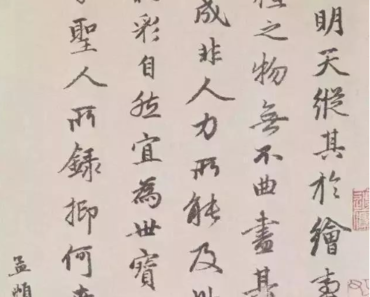 明天縱其於繪事
之物無不曲盡其
成非人力所能及此
彩自然宜為世寶
聖人所錄抑何幸
孟頫